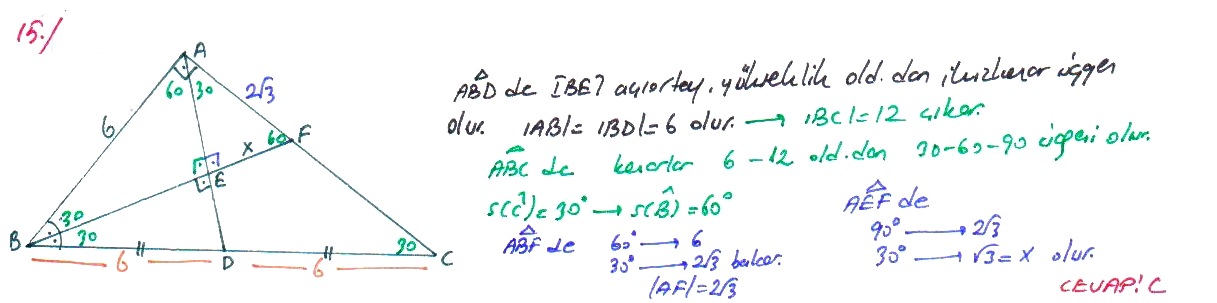 15./
A
60 30
2√3
6
60 F
x
E
30
B 30
30
D
C
6
6
ABD de [BE] açıortay, yükseklik old. dan ikizkenar üçgen
olur. |AB| = |BD| = 6 olur. → |BC| = 12 çıkar.
ABC de kenarlar 6 - 12 old. dan 30-60-90 üçgeni olur.
s(C) = 30° → s(B) = 60°
ABF de 60° → 6
30° → 2√3 bakar.
|AF| = 2√3
AEF de
90° → 2√3
30° → √3 = x olur.
CEVAP: C